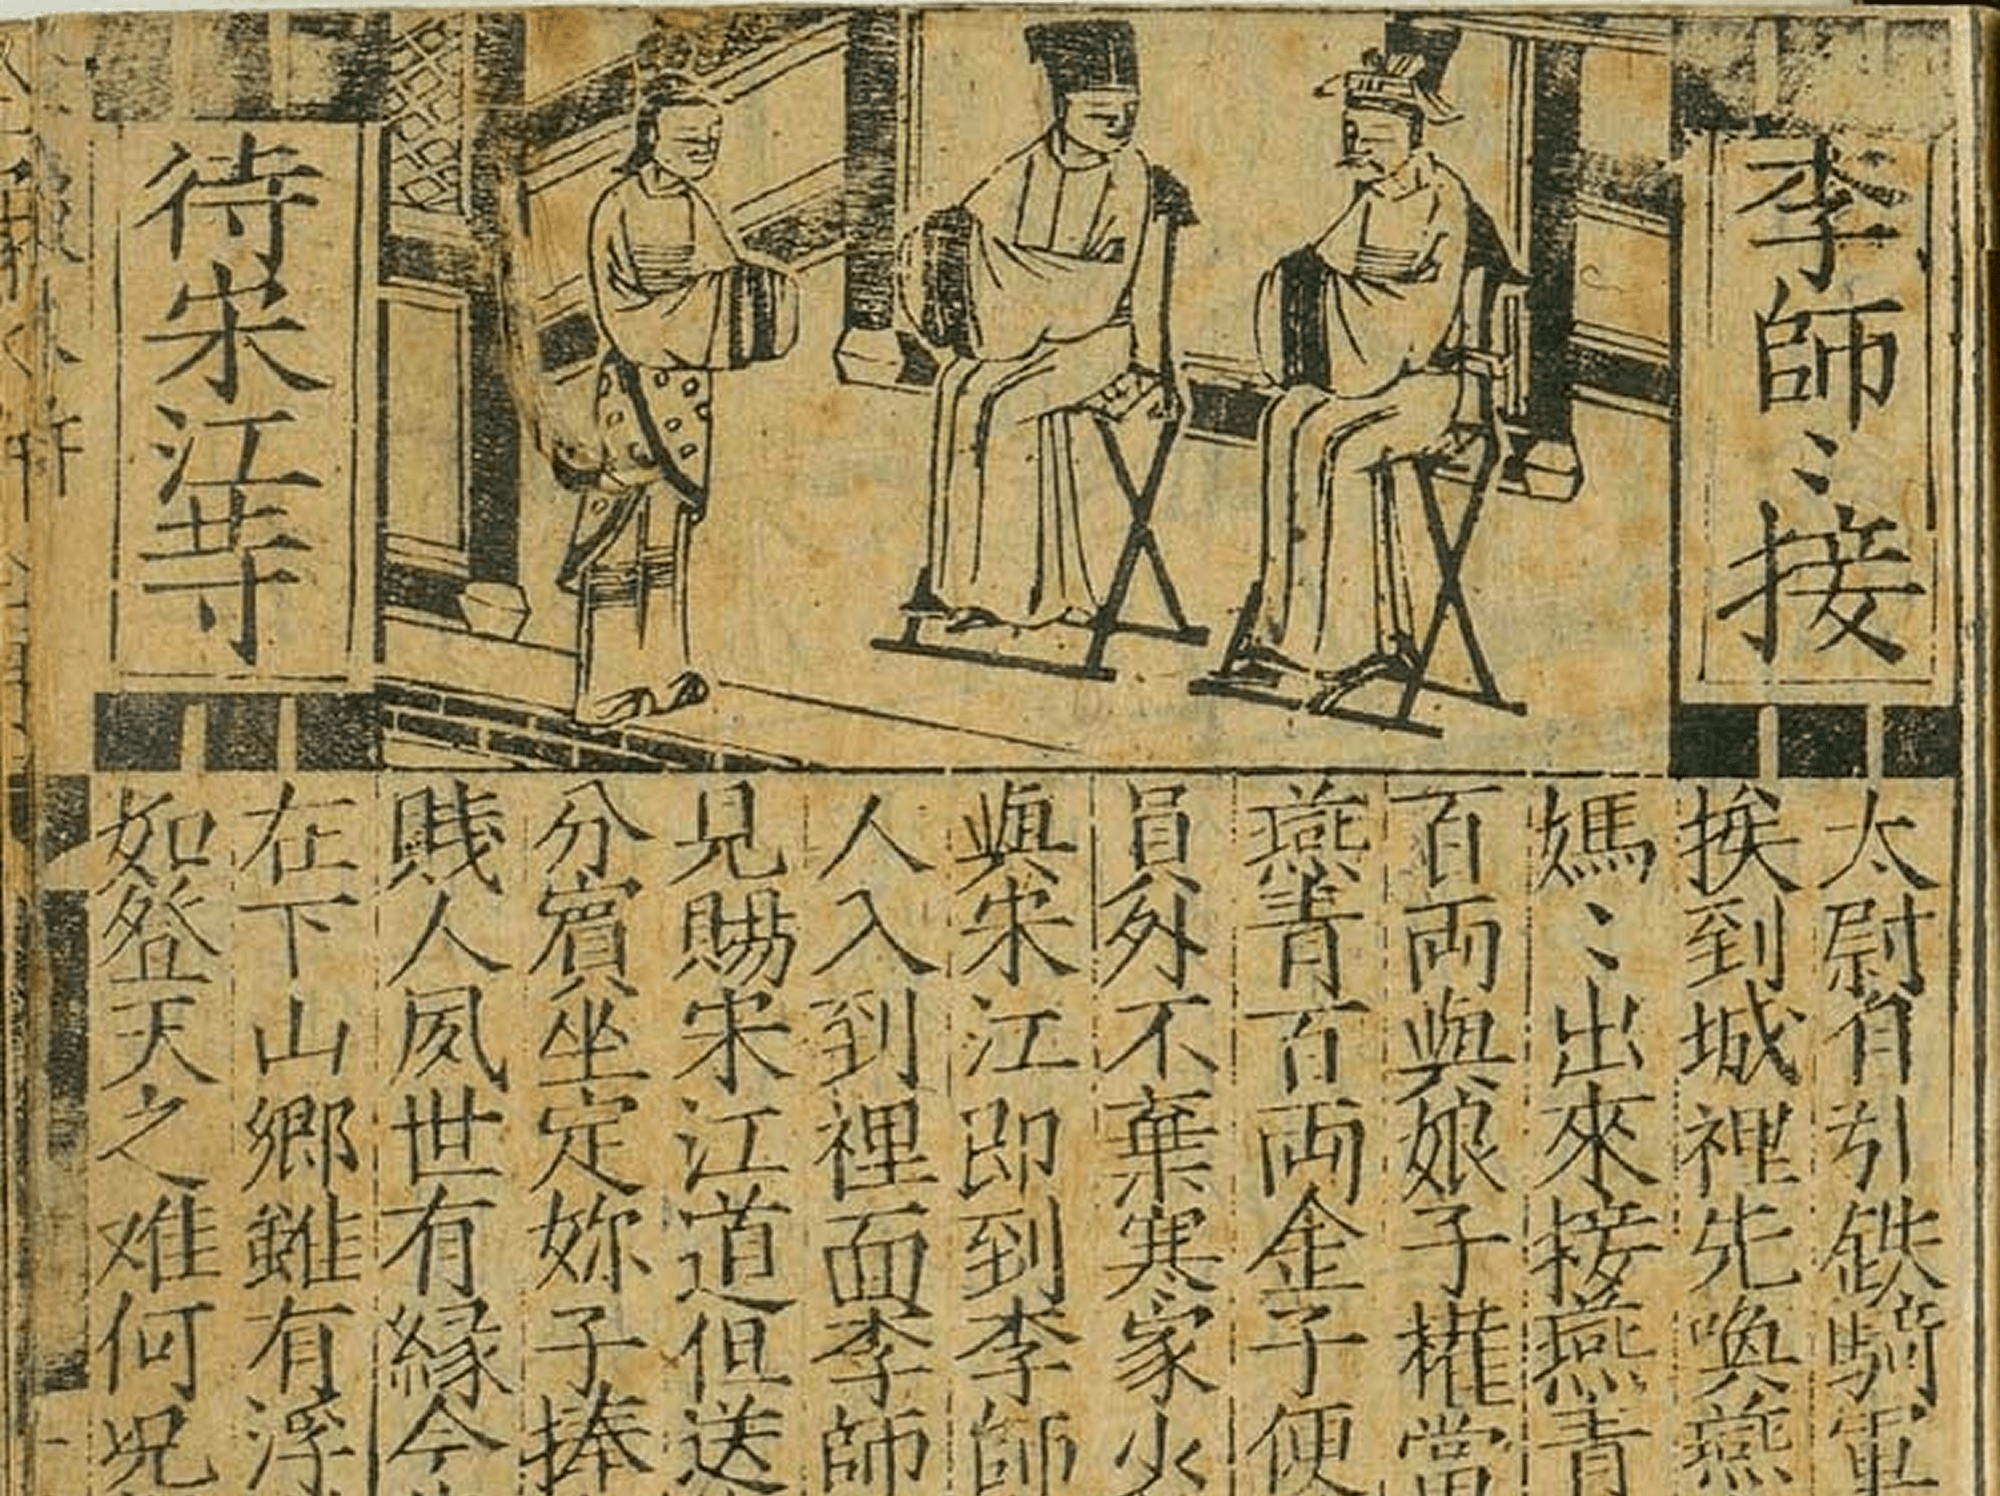 李師〻接
待宋江䓁
太尉有引鉄騎軍
挨到城裡先喚燕
媽〻出來接燕青
百両與娘子權當
燕青百両金子便
員外不棄寒家火
與宋江即到李師
人入到裡面李師
見賜宋江道但送
分賓坐定妳子捧
賤人夙世有緣今
在下山鄉雖有浮
如登天之难何况